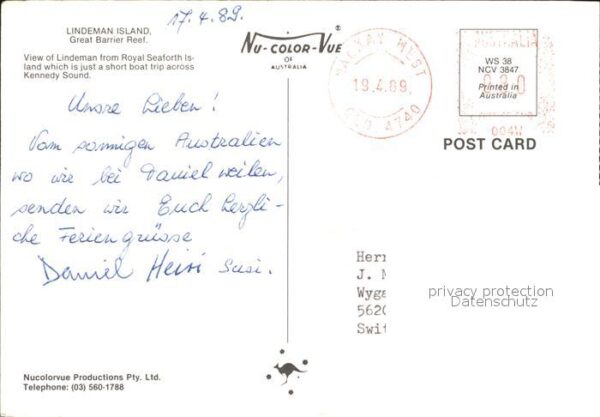 LINDEMAN ISLAND,
Great Barrier Reef.
View of Lindeman from Royal Seaforth Is-
land which is just a short boat trip across
Kennedy Sound.
17.4.89.
Unsre Lieben!
Vom sonnigen Australien
wo wir bei Daniel weilen,
senden wir Euch herzli-
che Feriengrüsse
Daniel Heisi Susi.
Nucolorvue Productions Pty. Ltd.
Telephone: (03) 560-1788
NU-COLOR-VUE®
OF
AUSTRALIA
MACKAY WEST
19.4.89.
QLD 4740
AUSTRALIA
WS 38
NCV 3847
Printed in
Australia
004W
POST CARD
Herr
J.
Wyga
562
Swit
privacy protection
Datenschutz